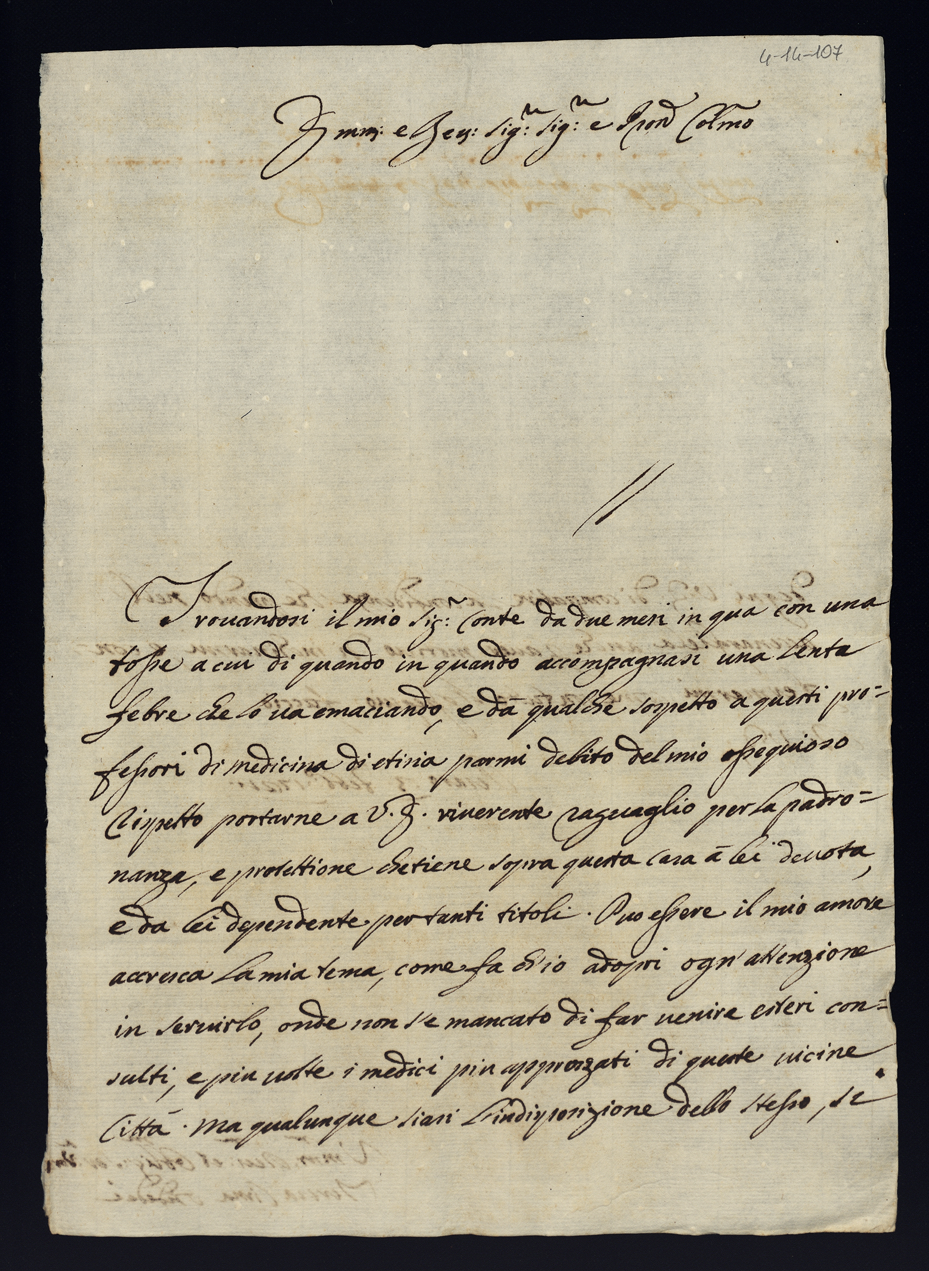 4-14-107
Emm: e Rev: Sig: Sig: e Pron Colmo
Trouandosi il mio Sig: Conte da due mesi in qua con una
tosse a cui di quando in quando accompagnasi una lenta
febre che lo ua emaciando, e da qualche sospetto a questi pro=
fessori di medicina di etisia parmi debito del mio ossequioso
rispetto portarne a V. E. riuerente raguaglio per la padro=
nanza, e protettione che tiene sopra questa casa à lei deuota,
e da lei dependente per tanti titoli. Puo essere il mio amore
accresca la mia tema, come fa ch'io adopri ogn'attenzione
in seruirlo, onde non s'e mancato di far uenire esteri con=
sulti, e piu uolte i medici piu apprezzati di queste uicine
Città. Ma qualunque siasi l'indisposizione dello stesso, se